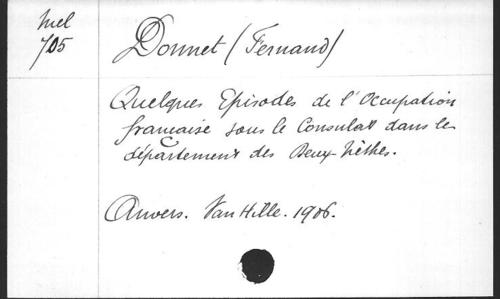 Mel
705
Donnet (Fernand)
Quelques Episodes de l'Occupation
française sous le Consulat dans le
département des Deux-Nèthes.
Anvers. Van Hille. 1906.